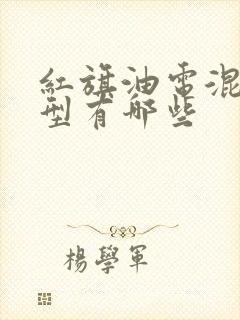 紅旗油電混
型有哪些
楊學軍